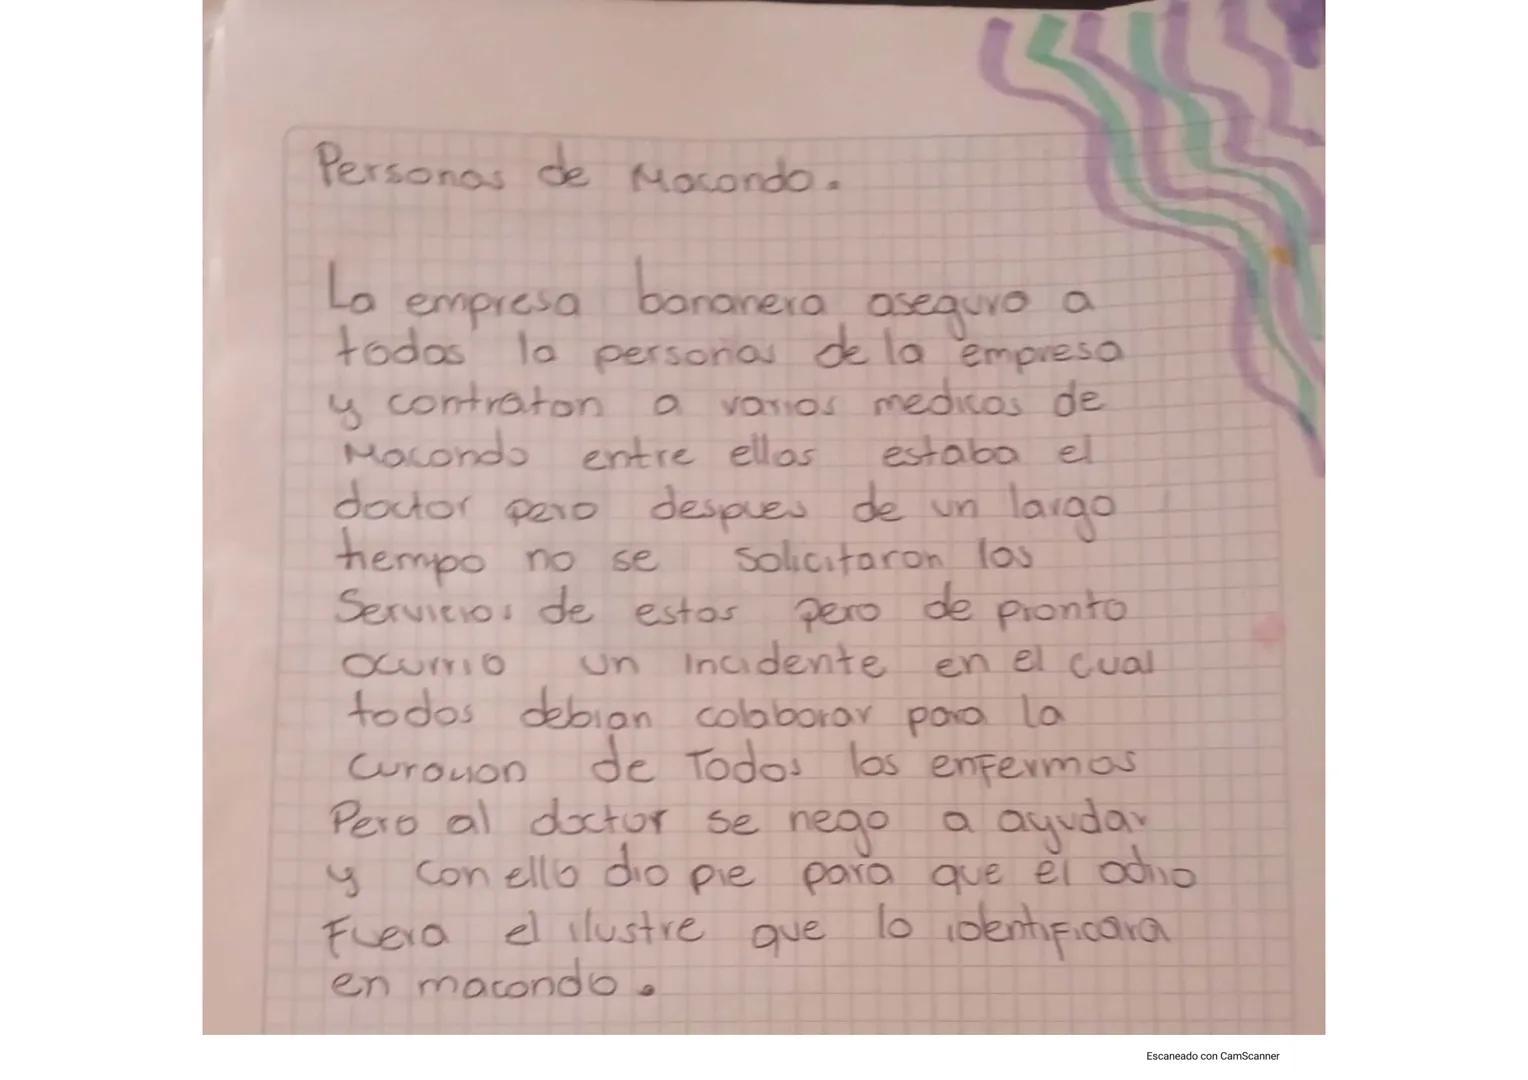 Personas de Macondo.
La empresa bananera aseguro a
todas la personas de la empresa
y contraton a varios medicos de
Macondo entre ellos estaba el
doctor pero despues de un largo
tiempo no se solicitaron los
Servicios de estos pero de pronto
ocurrio un incidente en el cual
todos debian colaborar para la
curacion de Todos los enfermos
Pero al doctor se nego a ayudar
y con ello dio pie para que el odio
Fuera el ilustre que lo identificara
en macondo.
Escaneado con CamScanner